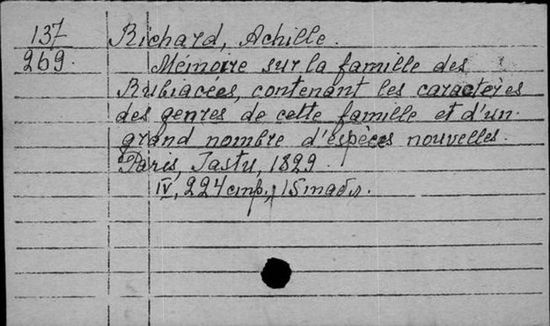 137 Richard, Achille.
269. Mémoire sur la famille des
Rubiacées, contenant les caractères
des genres de cette famille et d'un
grand nombre d'espèces nouvelles.
Paris, Tastu, 1829
IV, 224 стр., 15 табл.